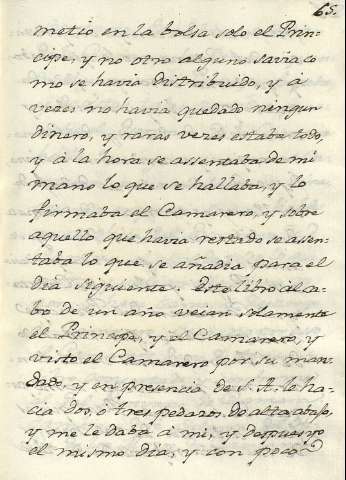 65.
metio en la bolsa solo el Prin-
cipe, y no otro alguno savia co
mo se havia distribuido, y á
vezes no havia quedado ningun
dinero, y raras vezes estaba todo,
y á la hora se assentaba de mi
mano lo que se hallaba, y lo
firmaba el Camarero, y sobre
aquello que havia restado se asen-
taba lo que se añadia para el
dia siguiente. Este libro al ca-
bo de un año veien solamente
el Principe, y el Camarero, y
visto el Camarero por su man-
dado, y en presencia de S. A. le ha-
cia dos, ó tres pedazos de alto abajo,
y me le daba á mi, y despues yo
el mismo dia, y con poco